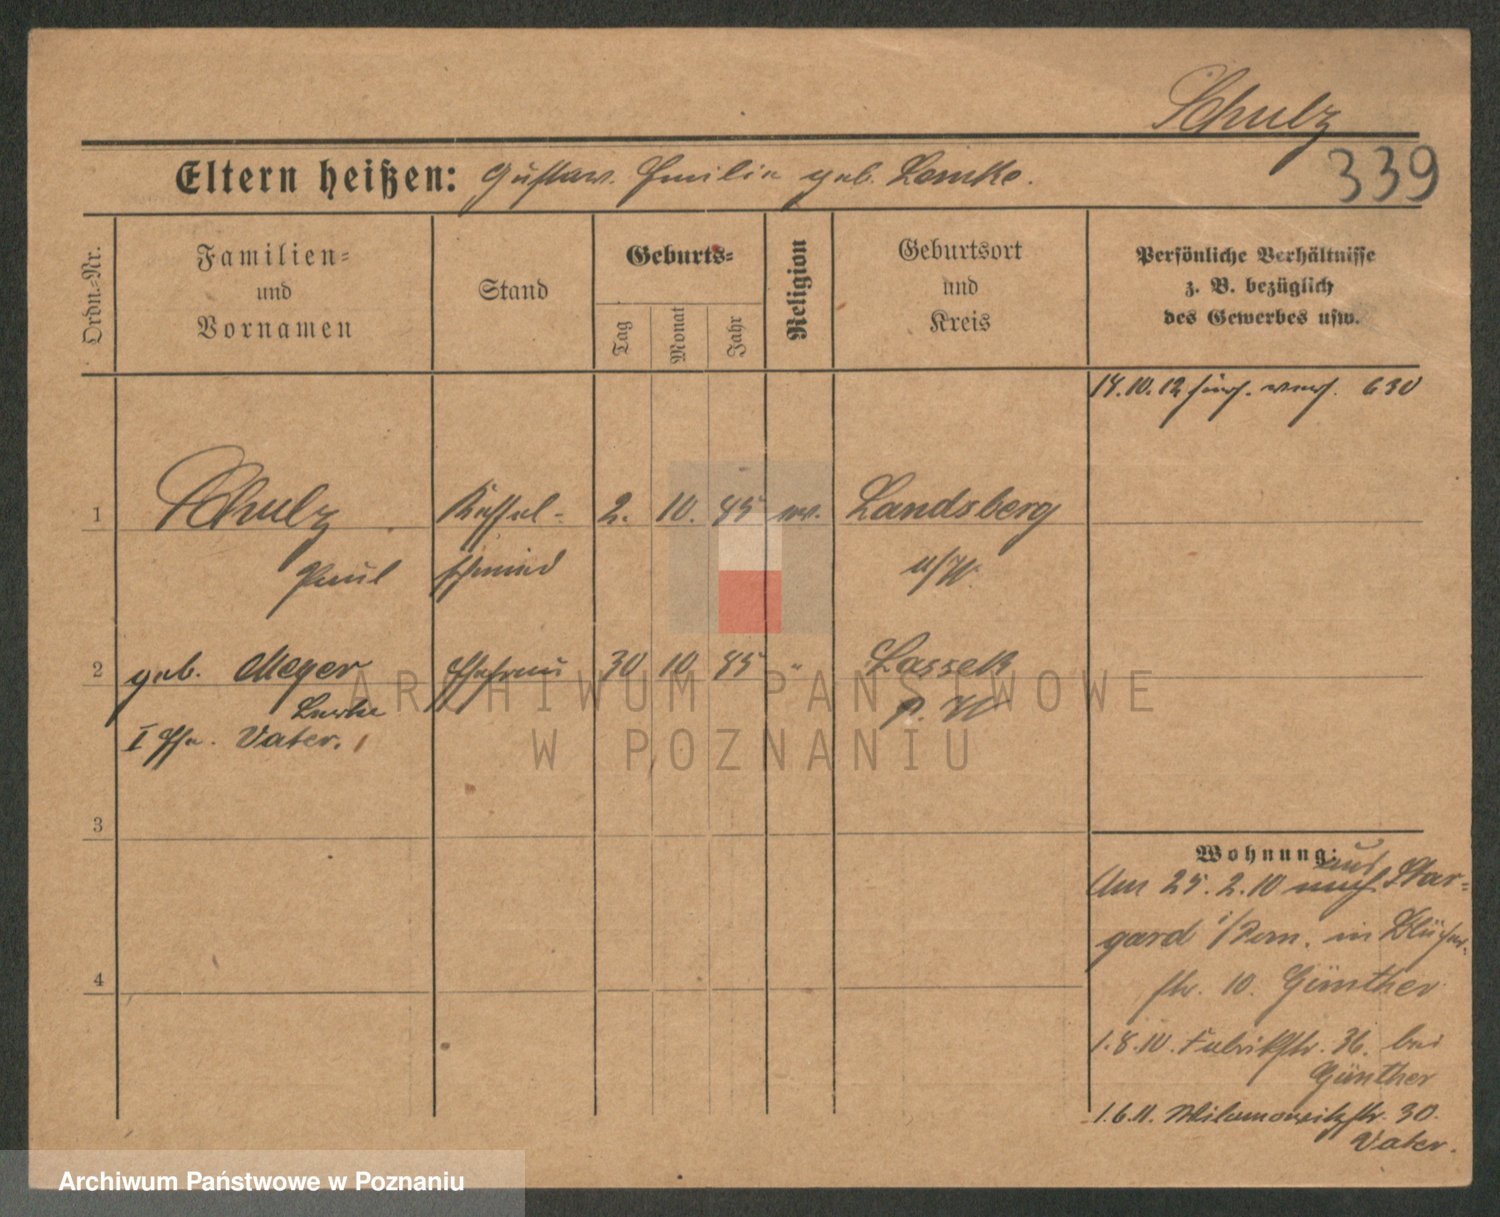 Schulz
339
Eltern heißen: Gustav. Emilie geb. Lemke.
Ordn.-Nr.
Familien-
und
Vornamen
Stand
Geburts-
Tag
Monat
Jahr
Religion
Geburtsort
und
Kreis
Persönliche Verhältnisse
z. B. bezüglich
des Gewerbes usw.
14.10.12 630
1
Schulz
Kessel-
2. 10. 85
Landsberg
Paul
schmied
a/W.
2
geb. Meyer
Ehefrau
30 10 85 "
I Ehe. Vater.
3
4
Wohnung:
aus
Am 25.2.10 Star-
gard i/Pom. in Blücher-
str. 10. Günther
1.8.10. Fabrikstr. 36. bei
Günther
1.6.11. Wilamowitzstr. 30.
Vater.
ARCHIWUM PAŃSTWOWE
W POZNANIU
Archiwum Państwowe w Poznaniu